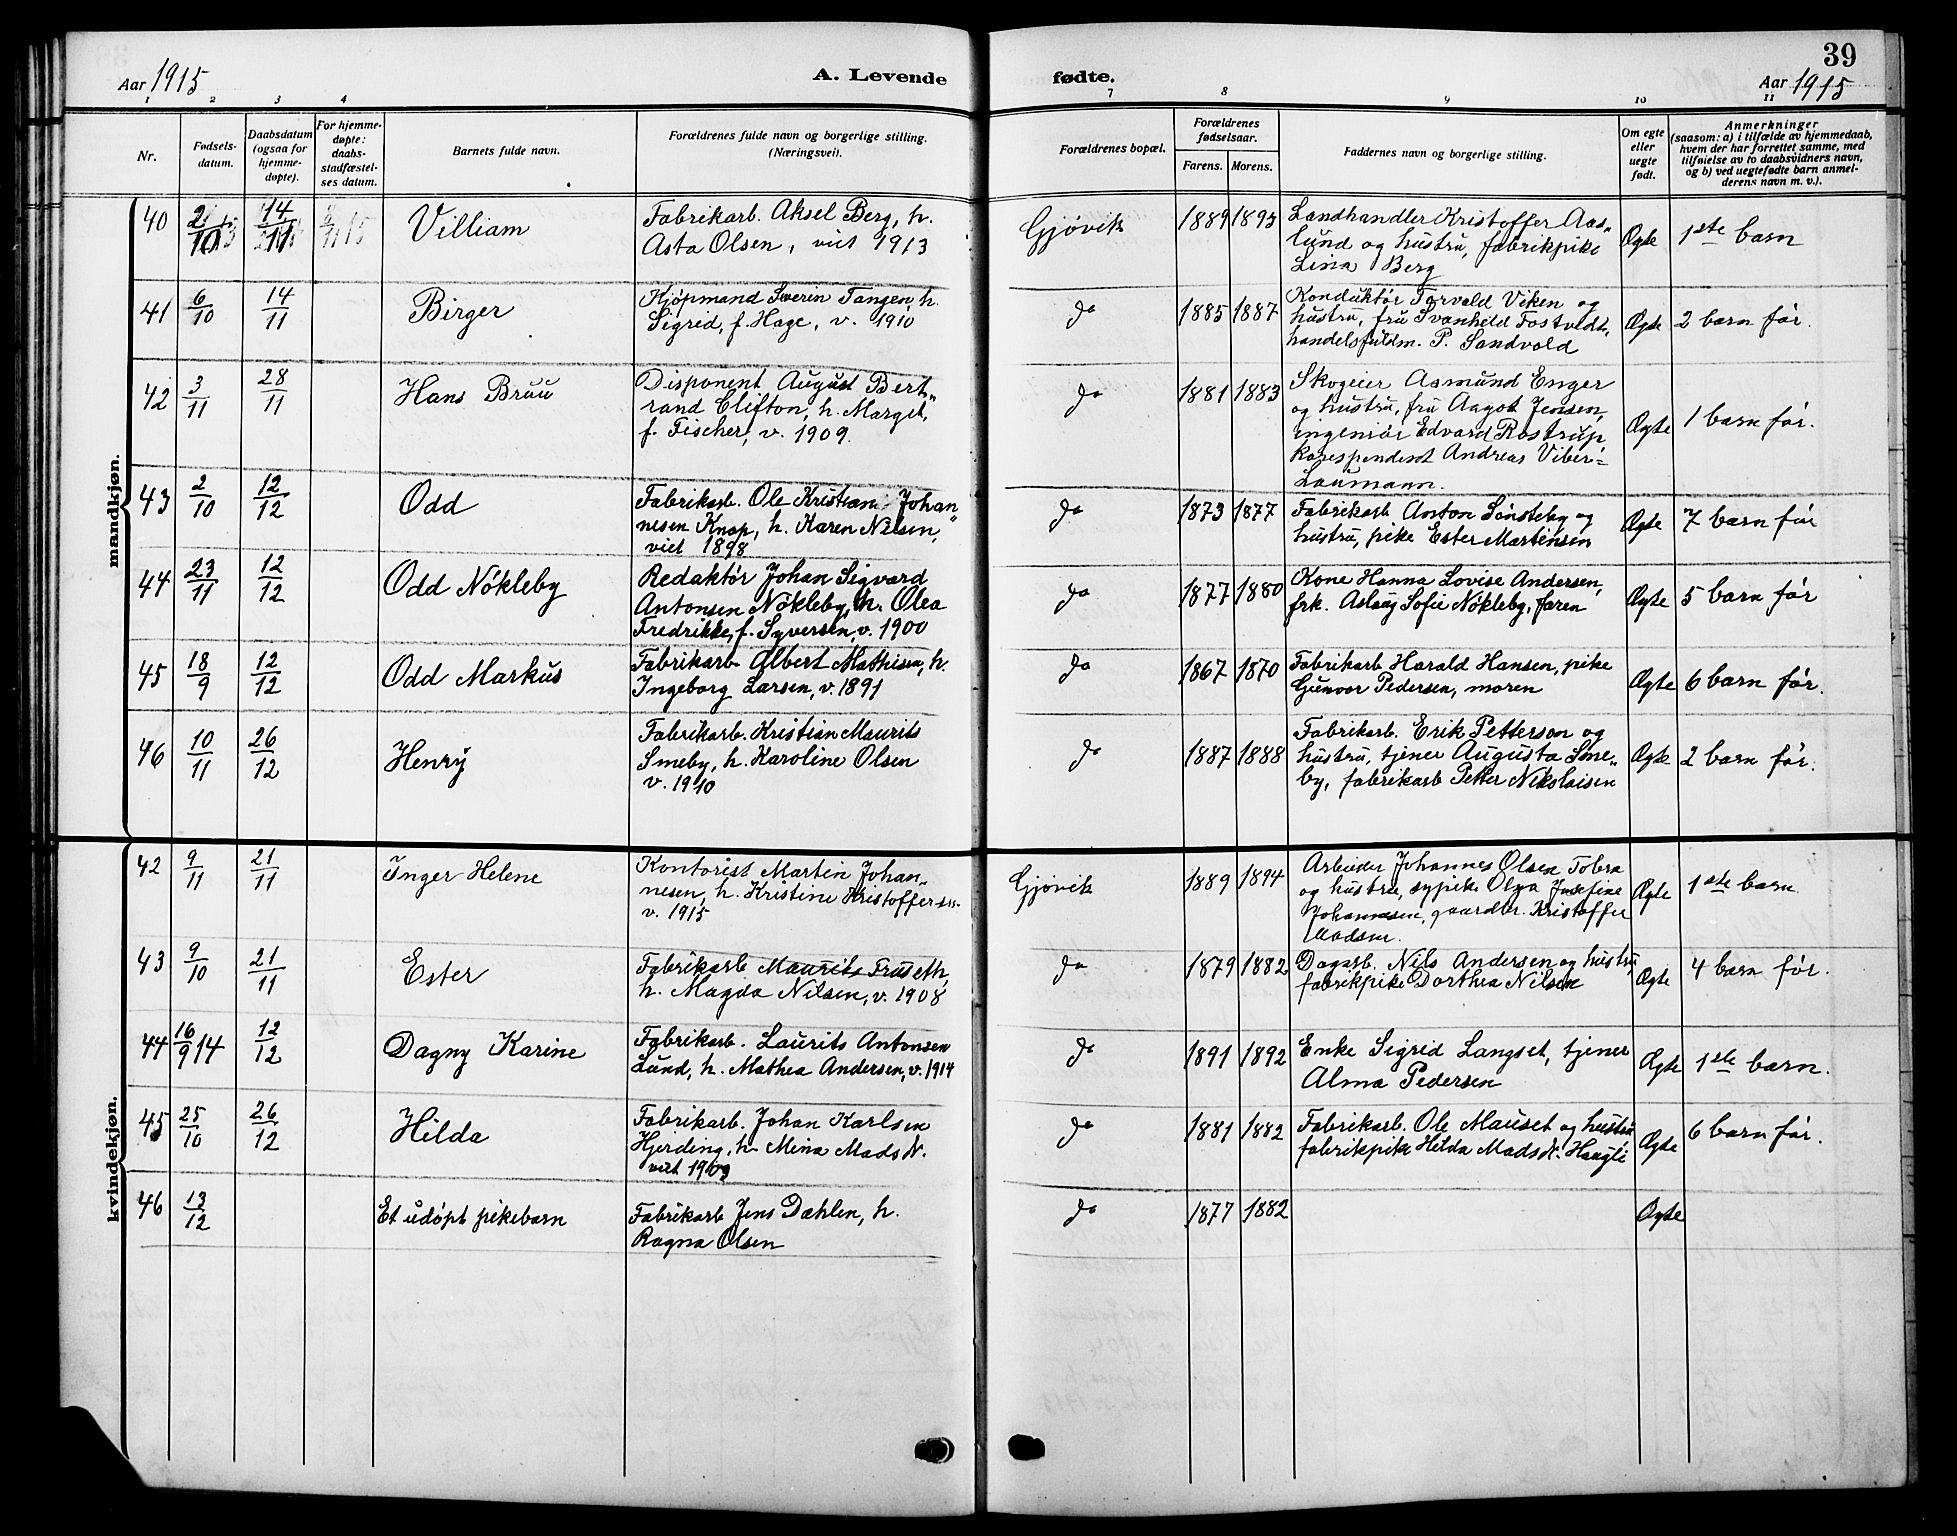 39
Aar 1915
A. Levende
fødte.
Aar 1915
1 2 3 4
7 8 9 10 11
Nr.
Fødsels-
datum.
Daabsdatum
(ogsaa for
hjemme-
døpte).
For hjemme-
døpte:
daabs-
stadfæstel-
ses datum.
Barnets fulde navn.
Forældrenes fulde navn og borgerlige stilling.
(Næringsvei).
Forældrenes bopæl.
Forældrenes
fødselsaar.
Farens. Morens.
Faddernes navn og borgerlige stilling.
Om egte
eller
uegte
født.
Anmerkninger
(saasom: a) i tilfælde av hjemmedaab,
hvem der har forrettet samme, med
tilføielse av to daabsvidners navn,
og b) ved uegtefødte barn anmel-
derens navn m. v.).
mandkjøn.
40 2/10 14/11 Villiam
Fabrikarb. Aksel Berg, h.
Asta Olsen, viet 1913
Gjøvik 1889 1895
Landhandler Kristoffer Aas„
lund og hustru, fabrikpike
Lina Berg
Ægte 1ste barn
41 6/10 14/11 Birger
Kjöpmand Severin Tangen, h.
Sigrid, f. Hage, v. 1910
do 1885 1887
Konduktör Torvald Viken og
hustru, fru Svanhild Tostvedt,
handelsfuldm. P. Sandvold
Ægte 2 barn för.
42 3/11 28/11 Hans Bruu
Disponent August Bert„
rand Clifton, h. Margit,
f. Fischer, v. 1909.
do 1881 1883
Skogeier Aamund Enger
og hustru, fru Aagot Jensen,
ingeniör Edvard Rostrup,
korespondent Andreas Viber=
Laumann.
Ægte 1 barn för.
43 2/10 12/12 Odd
Fabrikarb. Ole Kristian Johan„
nesen Knap, h. Karen Nilsen,
viet 1898
do 1873 1877
Fabrikarb Anton Sönsteby og
hustru, pike Ester Martinsen
Ægte 7 barn för
44 23/11 12/12 Odd Nökleby
Redaktör Johan Sigvard
Antonsen Nökleby, h. Olea
Fredrikke, f. Syversen, v. 1900
do 1877 1880
Kone Hanna Lovise Andersen,
frk. Aslaug Sofie Nökleby, faren
Ægte 5 barn för
45 18/9 12/12 Odd Markus
Fabrikarb Albert Mathisen, h.
Ingeborg Larsen, v. 1891
do 1867 1870
Fabrikarb Harald Hansen, pike
Gunvor Pedersen, moren
Ægte 6 barn för.
46 10/11 26/12 Henry
Fabrikarb. Kristian Maurits
Smeby, h. Karoline Olsen
v. 1910
do 1887 1888
Fabrikarb. Erik Petterson og
hustru, tjener Augusta Sme„
by, fabrikarb Petter Nikolaisen
Ægte 2 barn för.
kvindekjøn.
42 9/11 21/11 Inger Helene
Kontorist Martin Johan„
nesen, h. Kristine Kristoffersen
v. 1915
Gjøvik 1889 1894
Arbeider Johannes Olsen Tobra
og hustru, sypike Olga Josefine
Johannesen, gaardbr. Kristoffer
Madsen.
Ægte 1ste barn
43 9/10 21/11 Ester
Fabrikarb Maurits Fruseth,
h. Magda Nilsen, v. 1908
do 1879 1882
Dagarb. Nils Andersen og hustru
fabrikpike Dorthea Nilsen
Ægte 4 barn för.
44 16/9 14 12/12 Dagny Karine
Fabrikarb. Laurits Antonsen
Lund, h. Mathea Andersen, v. 1914
do 1891 1892
Enke Sigrid Langset, tjener
Alma Pedersen
Ægte 1ste barn.
45 25/10 26/12 Hilda
Fabrikarb. Johan Karlsen
Hjerding, h. Mina Mads N.
viet 1902
do 1881 1882
Fabrikarb. Ole Mauset og hustru
fabrikpike Hilda Mads N. Haugli
Ægte 6 barn för.
46 13/12 Et udöpt pikebarn
Fabrikarb Jens Dæhlen, h.
Ragna Olsen
do 1877 1882
Ægte